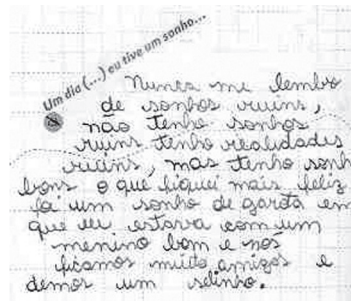 Um dia (...) eu tive um sonho...
Nunca me lembro
de sonhos ruins,
não tenho sonhos
ruins tenho realidades
ruins, mas tenho sonh
bons o que fiquei mais feliz
foi um sonho de garota em
que eu estava com um
menino bom e nos
ficamos muito amigos e
demos um selinho.